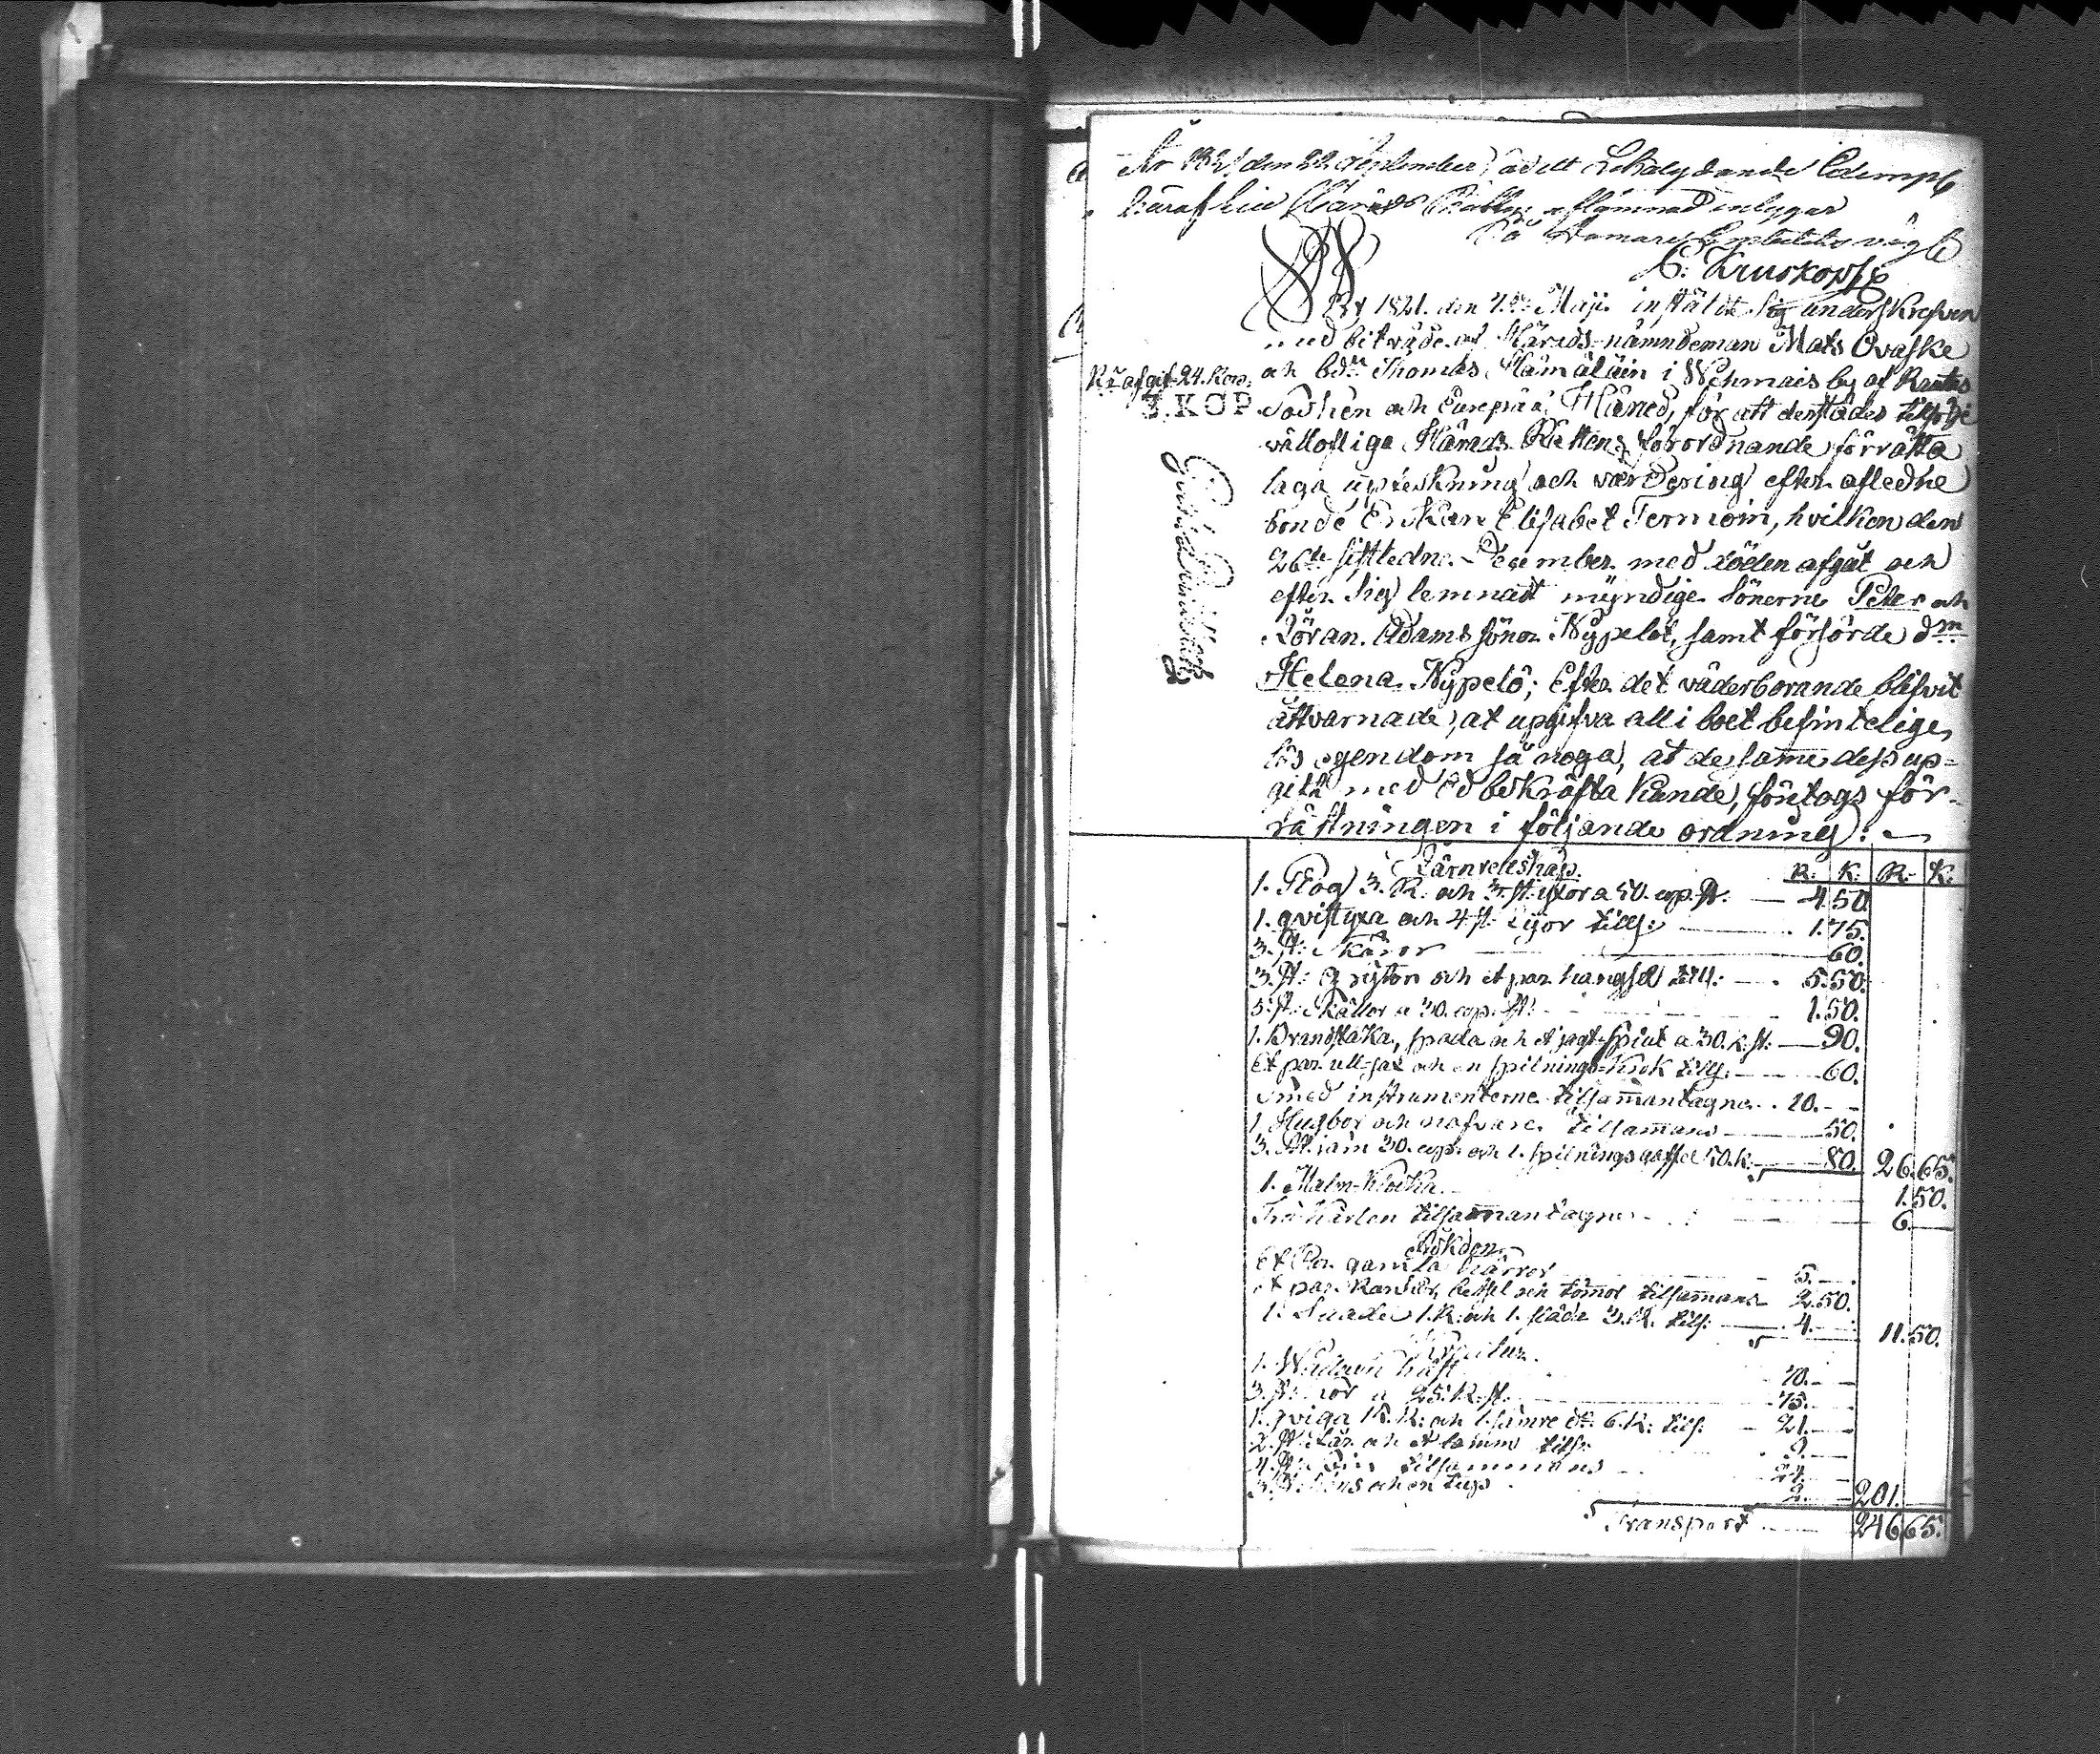 År 1821 den 22 September, är ett Lika lydande Exempl.
häraf hos Härads Rätten aflämnad intygar
På Domare Embetets vägnar
C. Kruskopf
År 1821. den 7de Maji instälde sig underskrefven
med biträde af Härads-nämndeman Mats Ovaske
och bdn Thomas Hämäläin i Wehmais by af Rautus
R. afgift 24. Kop.
3. KOP
Sochen och Euräpää Härad, för att derstädes tilfölje
vällofliga Härads Rättens förordnande förrätta
laga upteckning och värdering efter afledne
bonde Enkan Elisabet Termoin, hvilken den
26de sistledne December med döden afgåt och
efter sig lemnadt myndige Sönerne Peter och
Jöran Adams söner Nypelöt, samt förförde dm
Helena Nypelö; Efter det väderborande blifvit
åttvarnade, at upgifva all i boet befintelige
lös egendom så noga, at de samme dess up=
gift med Ed bekräfta kunde, företogs för-
rättningen i följande ordning:
Järnredskap. R. K. R. K.
1. Plog 3. R. och 3. st. yxor a 50. cop. st. 4 50
1. qvistyxa och 4 st. Lijor tills: 1.75.
3. st: Skäror 60.
3. st: Grytor och et par hängsel till: 5.50.
5. st: Skällor a 30. cop. st: 1.50.
1. Brandstaka, spada och et jagt-spiut a 30. K. st: 90.
Et par ull-sax och en spilnings-krok tills: 60.
Smed instrumenterne tilsamantagne 10.
1. Husbor och nafvare tilsamans 50.
3. st. 30. cop. och 1. spilnings gaffel 50. K. 80. 26.65.
1. Malm-Klocka 1.50.
Trä kärlen tilsamantagne 6
Åkdon.
Et Par gamla kärror 5.
et par Rankor, betsel och tömor tilsamans 2.50.
1. 1. R. och 1. släde 3. R. tils. 4. 11.50.
Kreatur.
1. Wallach häst 70.
3. st. kor a 25. R. st. 75.
1. qviga 15. R. och 1. sämre do 6. R: tils: 21.
2. st. får och et lamm tils: 9.
4. st: Svin tilsammans 24.
3. st. höns och en tupp 2. 201.
Transport 246 65.